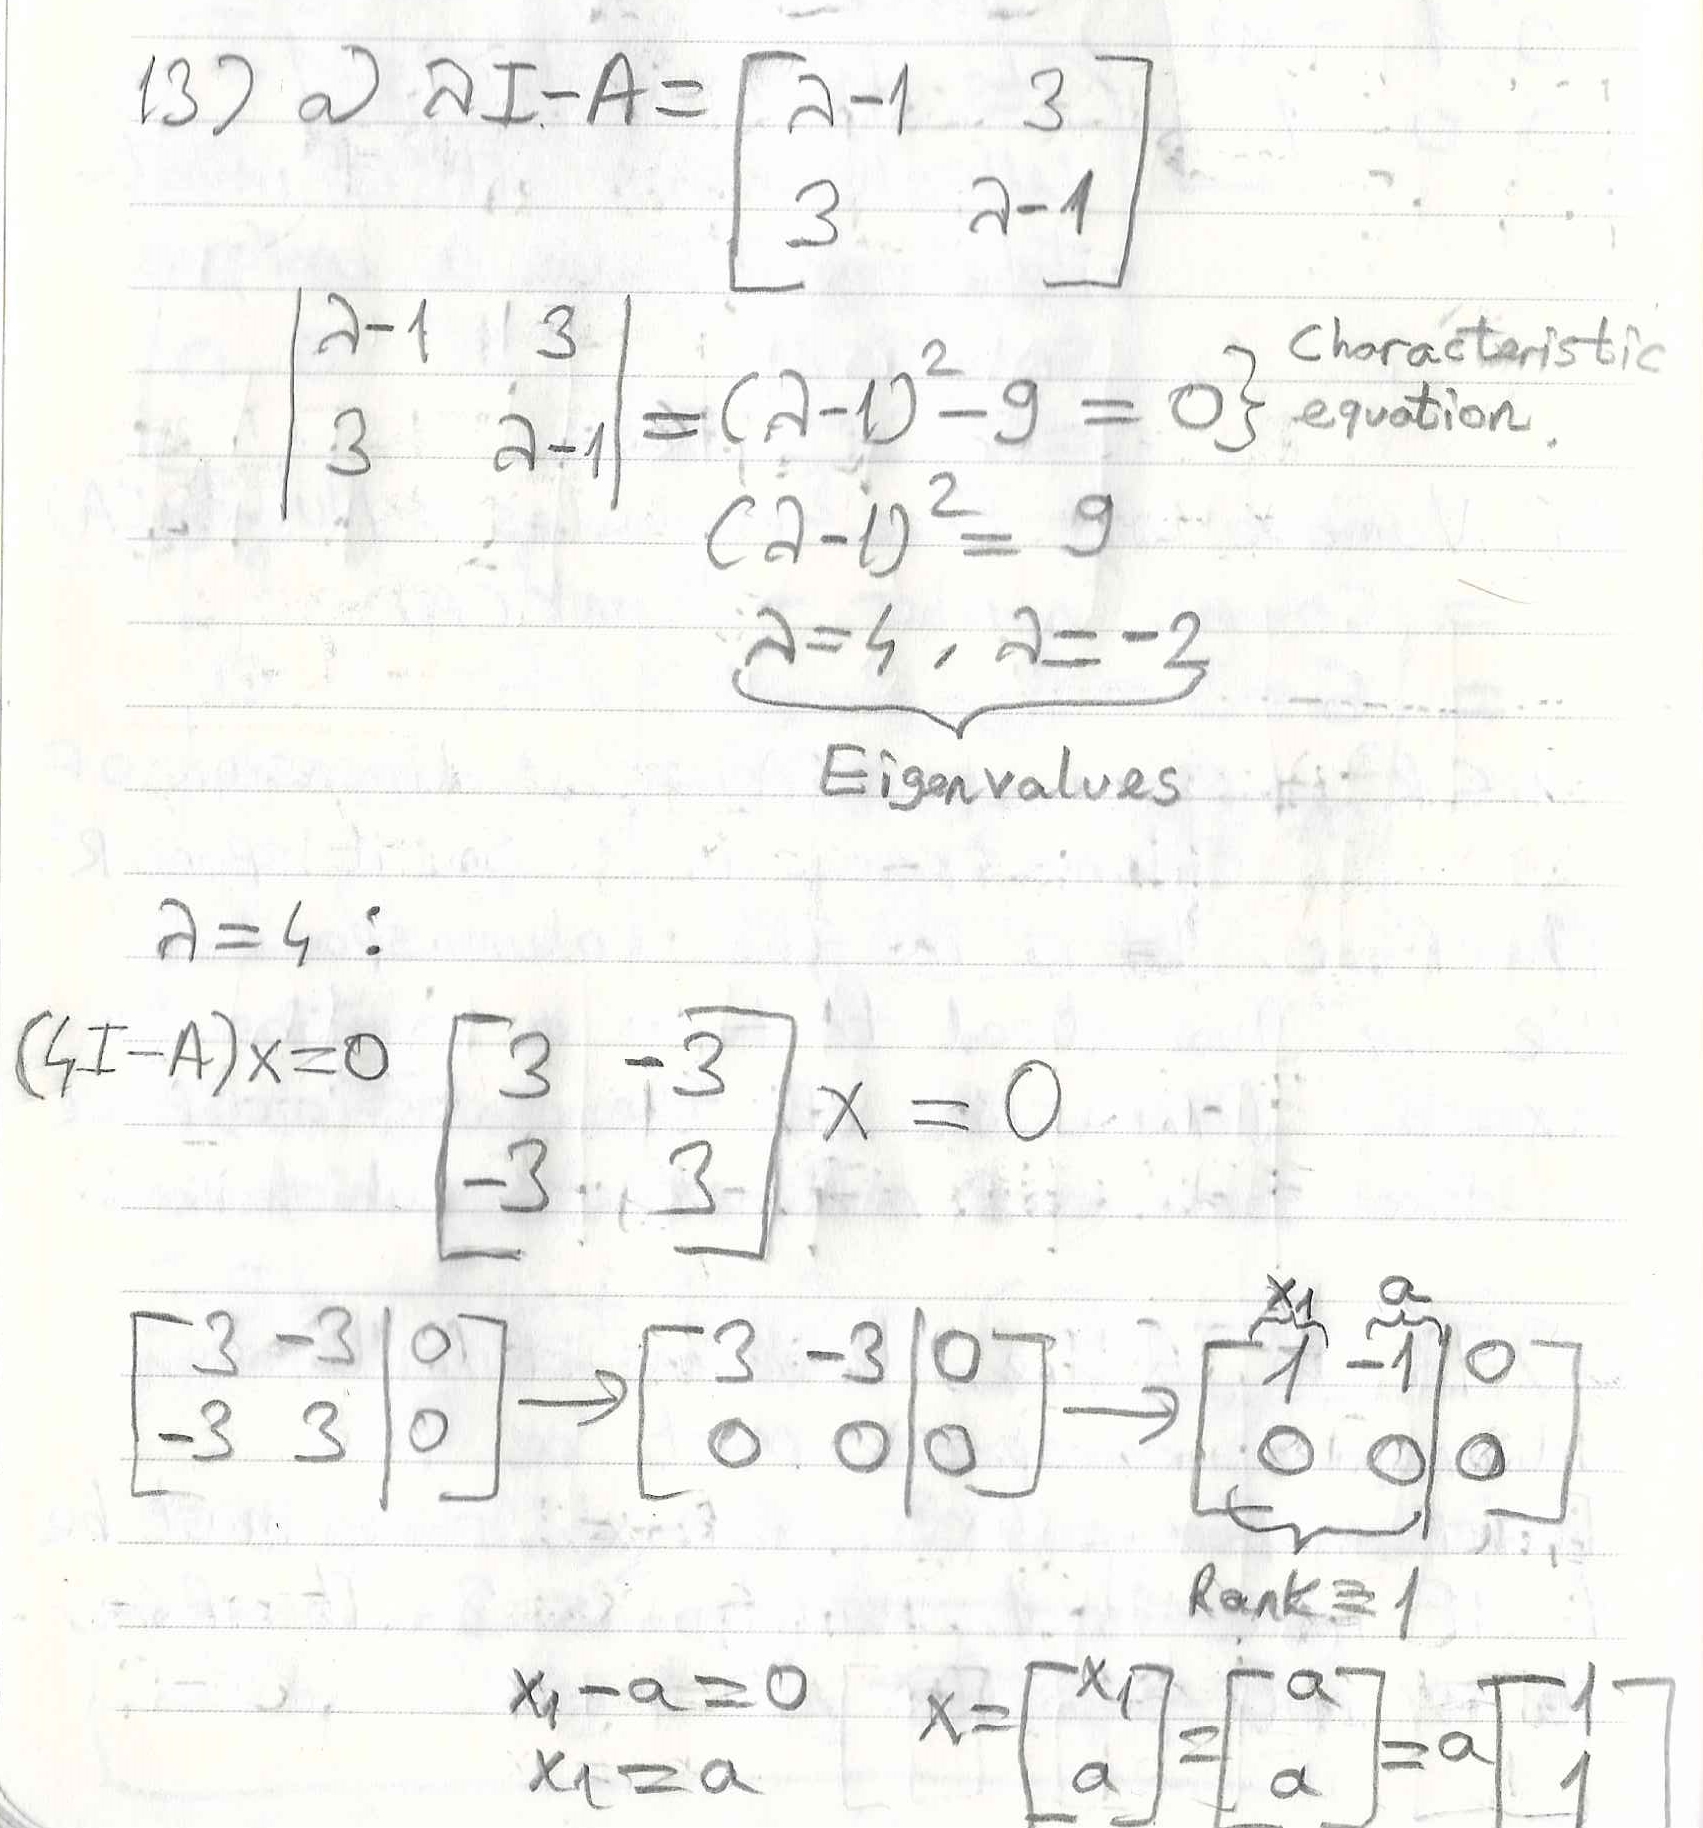 13) a) λI-A = [λ-1 3
3 λ-1]
|λ-1 3
3 λ-1| = (λ-1)² - 9 = 0} Characteristic equation.
(λ-1)² = 9
λ=4, λ=-2
Eigenvalues
λ=4:
(4I-A)x=0 [3 -3
-3 3] x = 0
x₁ a
[3 -3 | 0 → [3 -3 | 0 → [1 -1 | 0
-3 3 | 0] 0 0 | 0] 0 0 | 0]
Rank=1
x₁-a=0 x=[x₁ = [a = a[1
x₁=a a] a] 1]